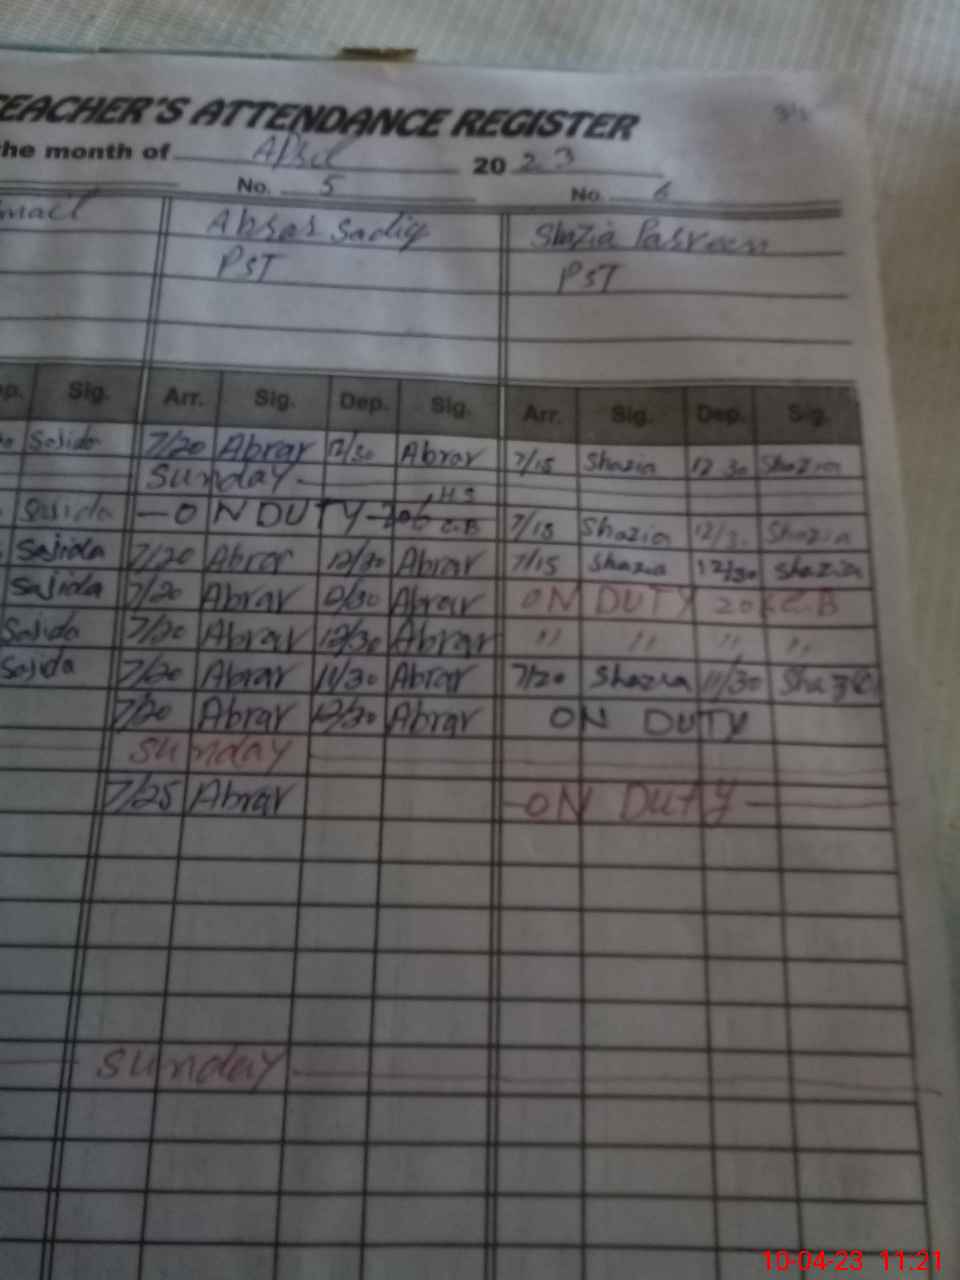 TEACHER'S ATTENDANCE REGISTER
the month of April 2023
No. 5 No. 6
Abrar Sadiq Shazia Parveen
PST PST
Sig. Arr. Sig. Dep. Sig. Arr. Sig. Dep. Sig.
Sajida 7/20 Abrar 12/30 Abrar 7/15 Shazia 12 30 Shazia
Sunday
Sajida ON DUTY 7/15 Shazia 12/3 Shazia
Sajida 7/20 Abrar 12/30 Abrar 7/15 Shazia 12/30 Shazia
Sajida 7/20 Abrar 12/30 Abrar ON DUTY
Sajida 7/20 Abrar 12/30 Abrar " " " "
Sajida 7/20 Abrar 11/30 Abrar 7/20 Shazia 11/30 Shazia
7/20 Abrar 12/30 Abrar ON DUTY
Sunday
7/25 Abrar ON DUTY
Sunday
10-04-23 11:21